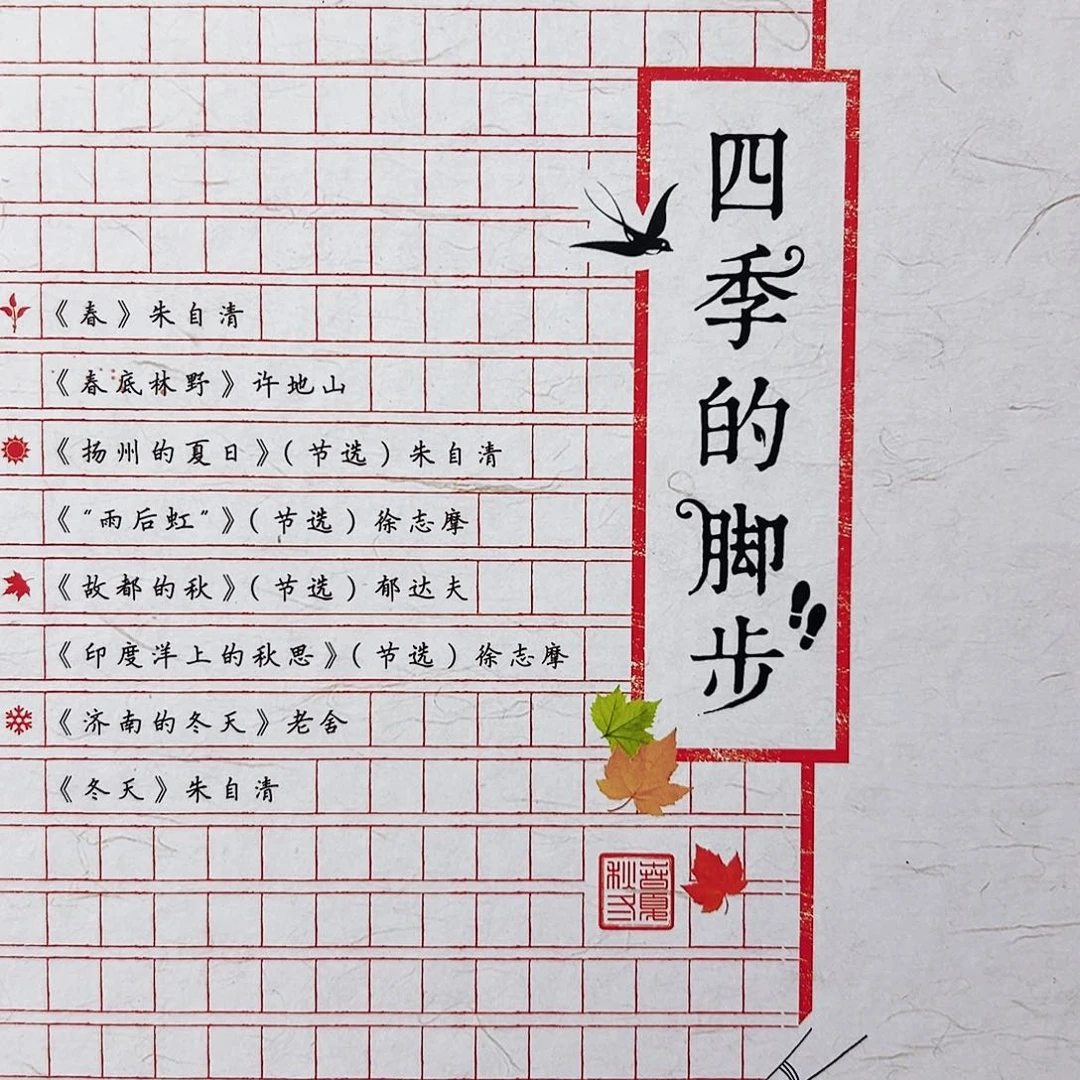 四季的脚步
《春》朱自清
《春底林野》许地山
《扬州的夏日》(节选)朱自清
《“雨后虹”》(节选)徐志摩
《故都的秋》(节选)郁达夫
《印度洋上的秋思》(节选)徐志摩
《济南的冬天》老舍
《冬天》朱自清
春夏秋冬